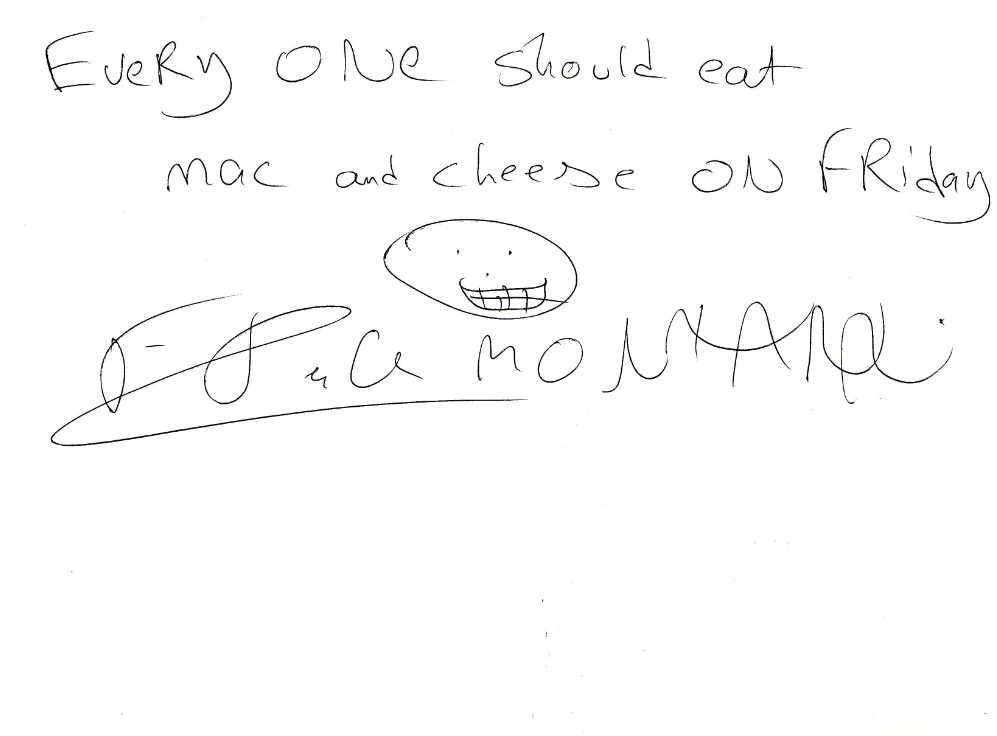 EveRy ONe should eat
mac and cheese ON FRiday